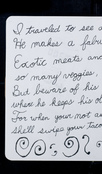 I traveled to see a
He makes a fabu
Exotic meats and
so many veggies.
But beware of his
where he keeps his ol
For when your not a
shell swipe your taco